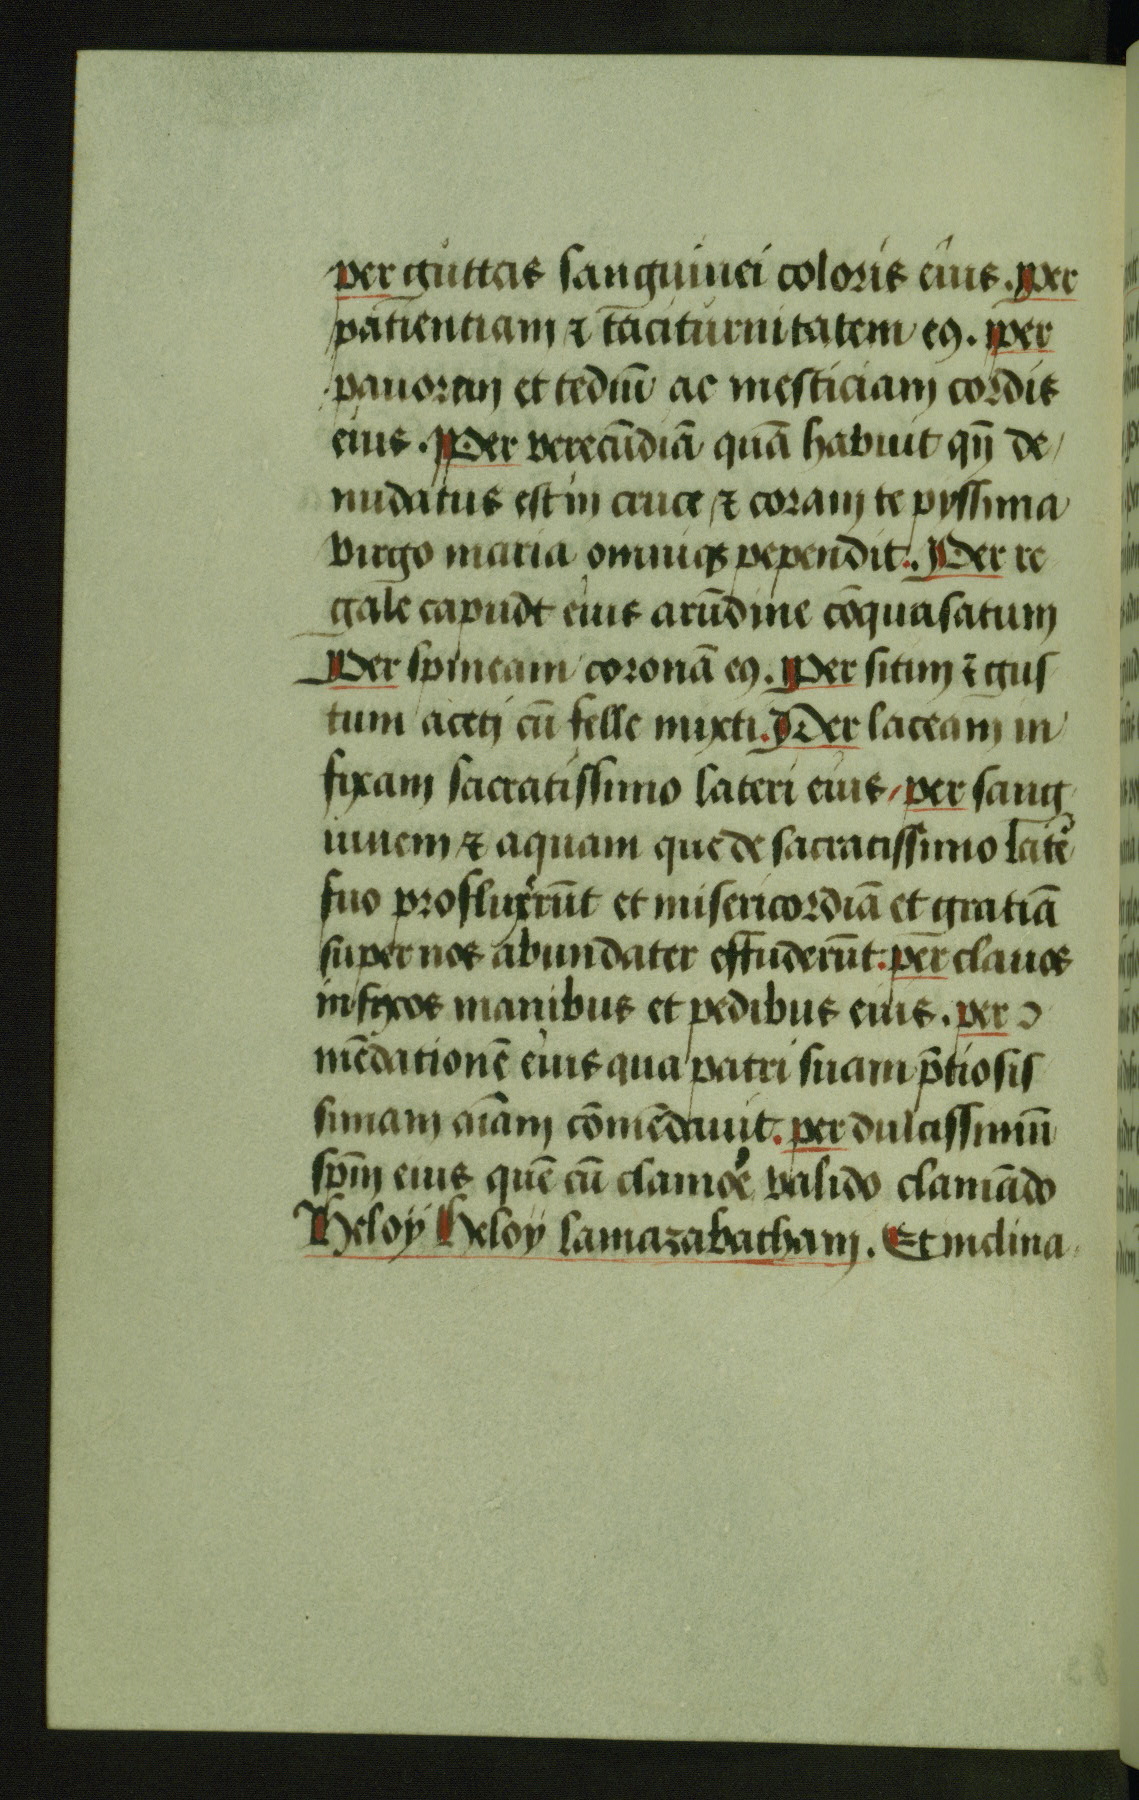 per guttas sanguinei coloris eius. Per
patientiam ⁊ taciturnitatem eꝰ. Per
pauorem et tediū ac mesticiam cordis
eius. Per verecūdiā quā habuit qn̄ de/
nudatus est in cruce ⁊ coram te pyssima
virgo maria omniūqꝫ pependit. Per re
gale capudt eius arūdine cōquasatum
Per spineam coronā eꝰ. Per sitim ⁊ gus
tum aceti cū felle mixti. Per laceam in
fixam sacratissimo lateri eius, per sang
uinem ⁊ aquam que de sacratissimo late
suo profluxerūt et misericordiā et gratiā
super nos abundater effuderūt. per clauos
infixos manibus et pedibus eius. per ↄ
mēdationē eius qua patri suam p̄tiosis
simam aīam cōmēdauit. per dulcissimū
spm̄ eius quē cū clamore valido clamādo
Heloÿ Heloÿ lamazabatham. Et inclina